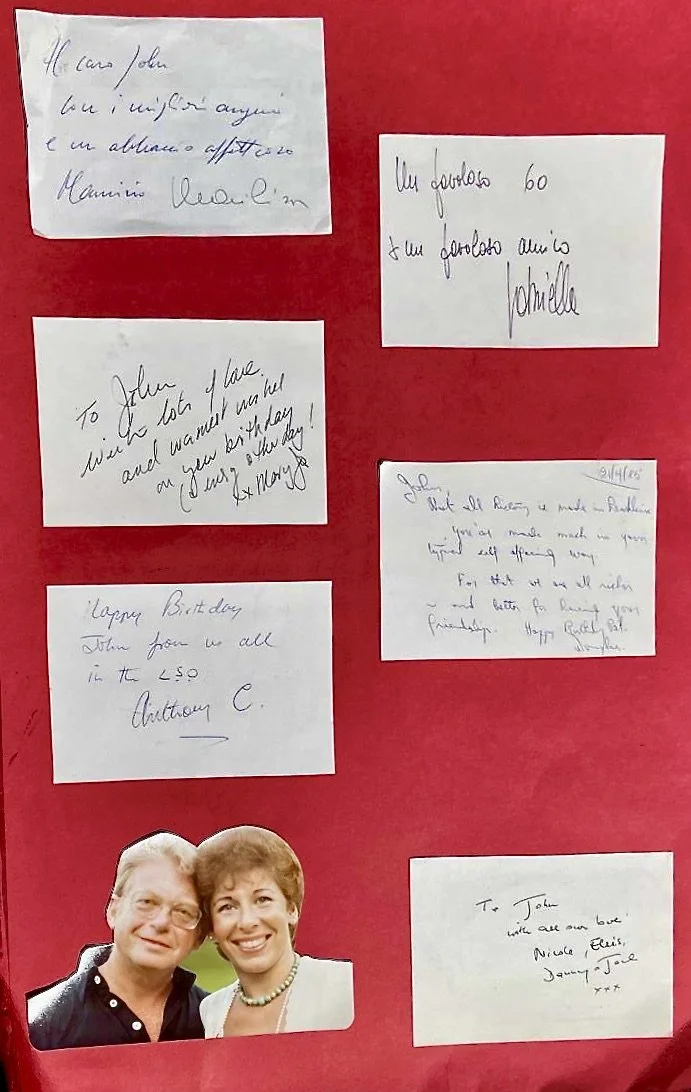 Al caro John
con i migliori auguri
e un abbraccio affettuoso
Maurizio
Un favoloso 60
x un favoloso amico
Gabriella
To John
with lots of love
and warmest wishes
on your birthday
(Denis's other day!
xx Mary Jo
21/4/85
John,
that all history is made in
you've made much in your
typical self effacing way.
For that we are all richer
and better for having your
friendship. Happy Birthday
Happy Birthday
John from us all
in the LSO
Anthony C.
To John
with all our love
Nicole, Elvis,
Danny & Joel
xxx